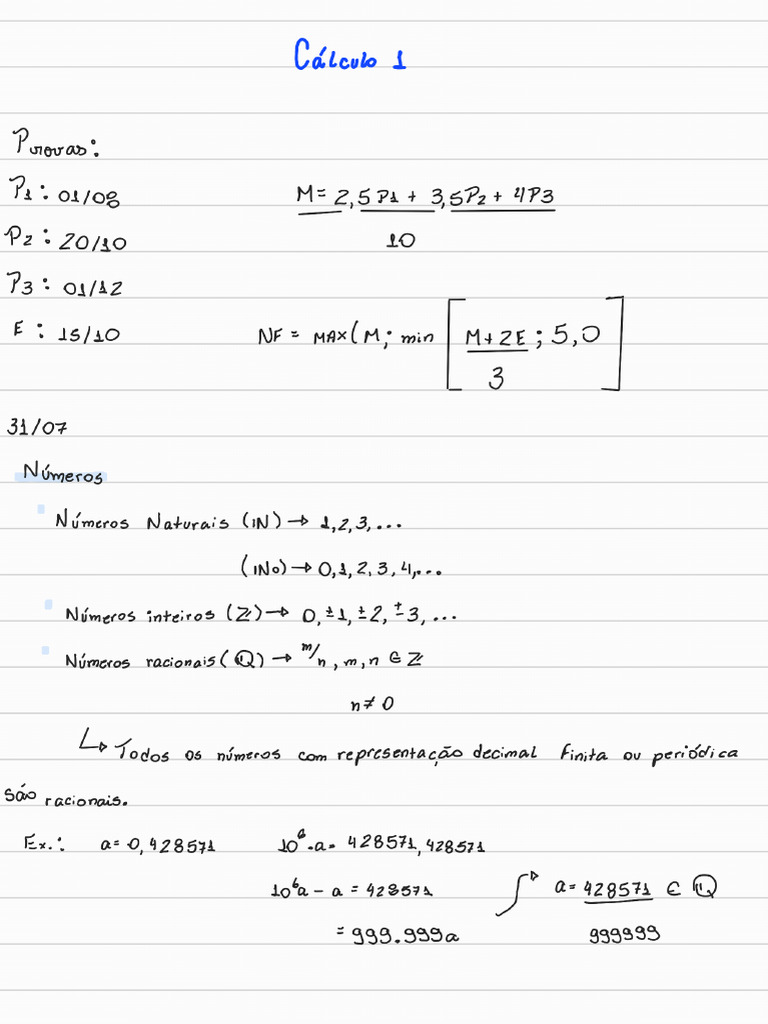 Cálculo 1
Provas:
P1: 01/08
M= 2,5P1 + 3,5P2 + 4P3
P2: 20/10
10
P3: 01/12
E: 15/10
NF = MAX(M; min [M+2E ; 5,0]
3
31/07
Números
Números Naturais (IN) → 1,2,3,...
(INo) → 0,1,2,3,4,...
Números inteiros (ℤ) → 0, ±1, ±2, ±3, ...
Números racionais (ℚ) → m/n, m,n ∈ ℤ
n ≠ 0
↳ Todos os números com representação decimal finita ou periódica
são racionais.
Ex.: a= 0,428571 10⁶·a= 428571,428571
10⁶a - a = 428571 a= 428571 ∈ ℚ
= 999.999a 999999